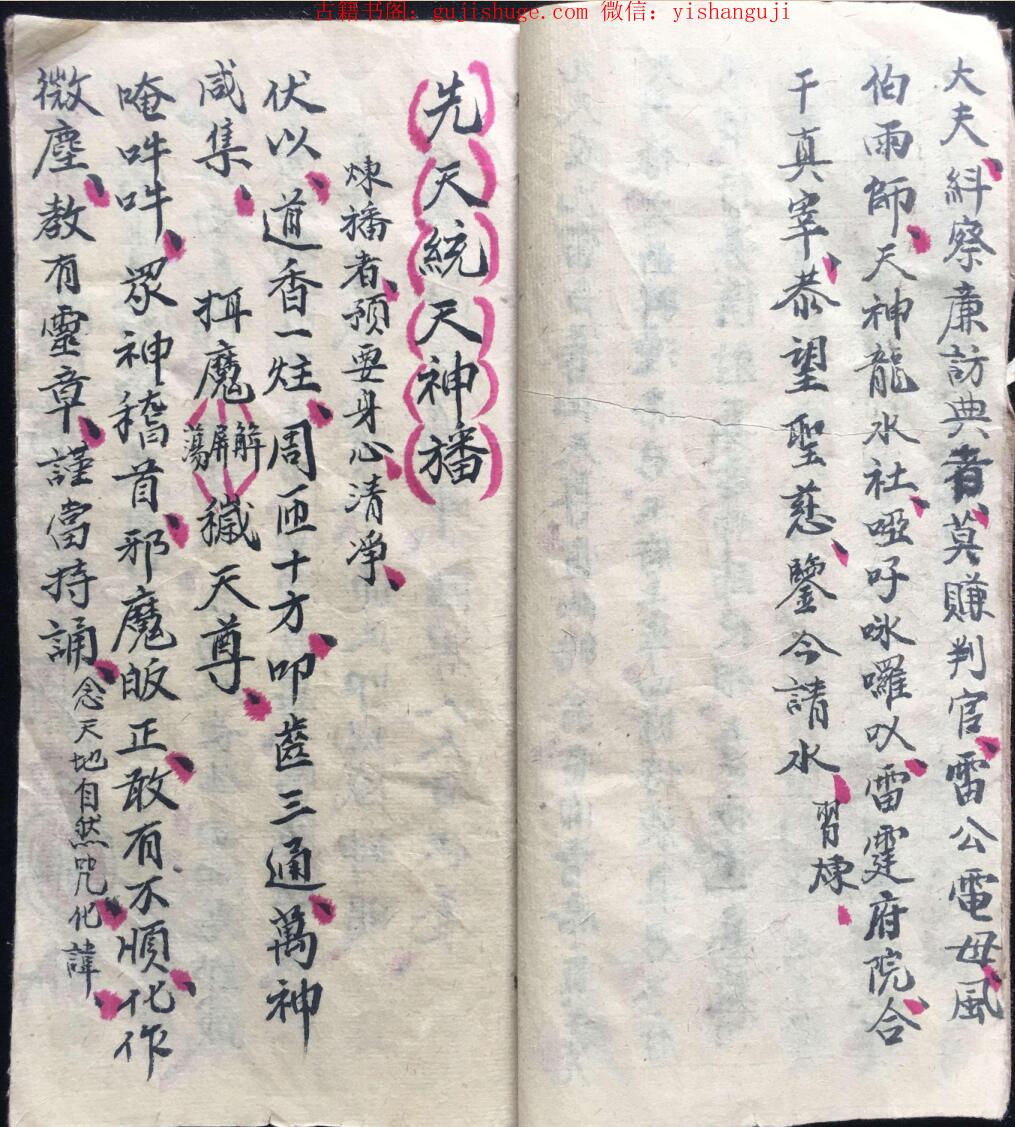 古籍书阁：gujishuge.com 微信：yishanguji
大夫糾察廉訪典者莫賺判官雷公電母風
伯雨師天神龍水社啞吁咏囉㕥雷霆府院合
干真宰恭望聖慈鑒今請水習煉
先天統天神旛
煉旛者預要身心清凈
伏以道香一炷周匝十方叩齒三通萬神
咸集 挕魔解屏蕩穢天尊
唵吽吽眾神稽首邪魔皈正敢有不順化作
微塵教有靈章謹當持誦念天地自然咒化諱